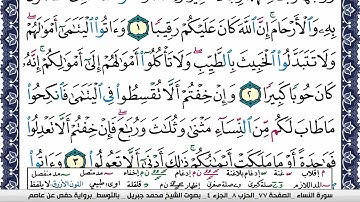 بِهِۦ وَٱلْأَرْحَامَ إِنَّ ٱللَّهَ كَانَ عَلَيْكُمْ رَقِيبًا ١ وَءَاتُوا۟ ٱلْيَتَٰمَىٰٓ أَمْوَٰلَهُمْ
وَلَا تَتَبَدَّلُوا۟ ٱلْخَبِيثَ بِٱلطَّيِّبِ وَلَا تَأْكُلُوٓا۟ أَمْوَٰلَهُمْ إِلَىٰٓ أَمْوَٰلِكُمْ إِنَّهُۥ
كَانَ حُوبًا كَبِيرًا ٢ وَإِنْ خِفْتُمْ أَلَّا تُقْسِطُوا۟ فِى ٱلْيَتَٰمَىٰ فَٱنكِحُوا۟
مَا طَابَ لَكُم مِّنَ ٱلنِّسَآءِ مَثْنَىٰ وَثُلَٰثَ وَرُبَٰعَ فَإِنْ خِفْتُمْ أَلَّا تَعْدِلُوا۟
فَوَٰحِدَةً أَوْ مَا مَلَكَتْ أَيْمَٰنُكُمْ ذَٰلِكَ أَدْنَىٰٓ أَلَّا تَعُولُوا۟ ٣ وَءَاتُوا۟
سورة النساء . الصفحة ٧٧ . الحزب ٨ . الجزء ٤ . بصوت الشيخ محمد جبريل . بالتوسط . برواية حفص عن عاصم